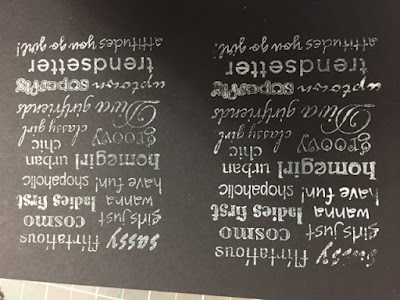 sassy flirtatious
girls just cosmo
wanna ladies first
have fun! shopaholic
homegirl urban
groovy chic
classy girl
Diva girlfriends
uptown superfly
trendsetter
attitudes you go girl!
sassy flirtatious
girls just cosmo
wanna ladies first
have fun! shopaholic
homegirl urban
groovy chic
classy girl
Diva girlfriends
uptown superfly
trendsetter
attitudes you go girl!